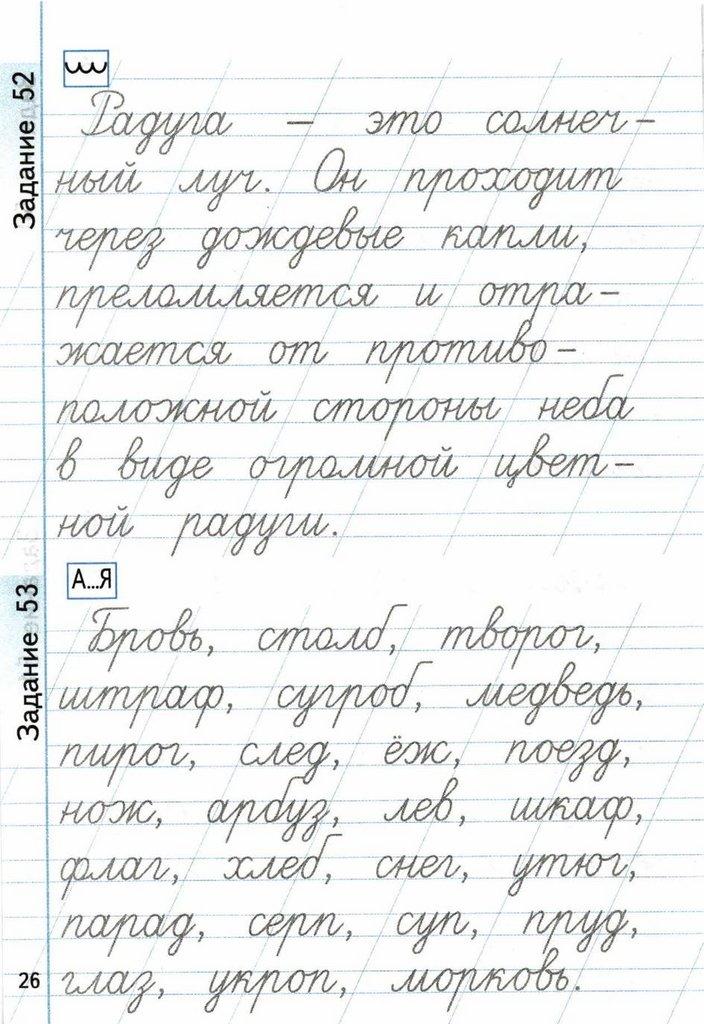 Задание 52
Радуга – это солнеч-
ный луч. Он проходит
через дождевые капли,
преломляется и отра-
жается от противо-
положной стороны неба
в виде огромной цвет-
ной радуги.
Задание 53
А...Я
Бровь, столб, творог,
штраф, сугроб, медведь,
пирог, след, ёж, поезд,
нож, арбуз, лев, шкаф,
флаг, хлеб, снег, утюг,
парад, серп, суп, пруд,
глаз, укроп, морковь.
26